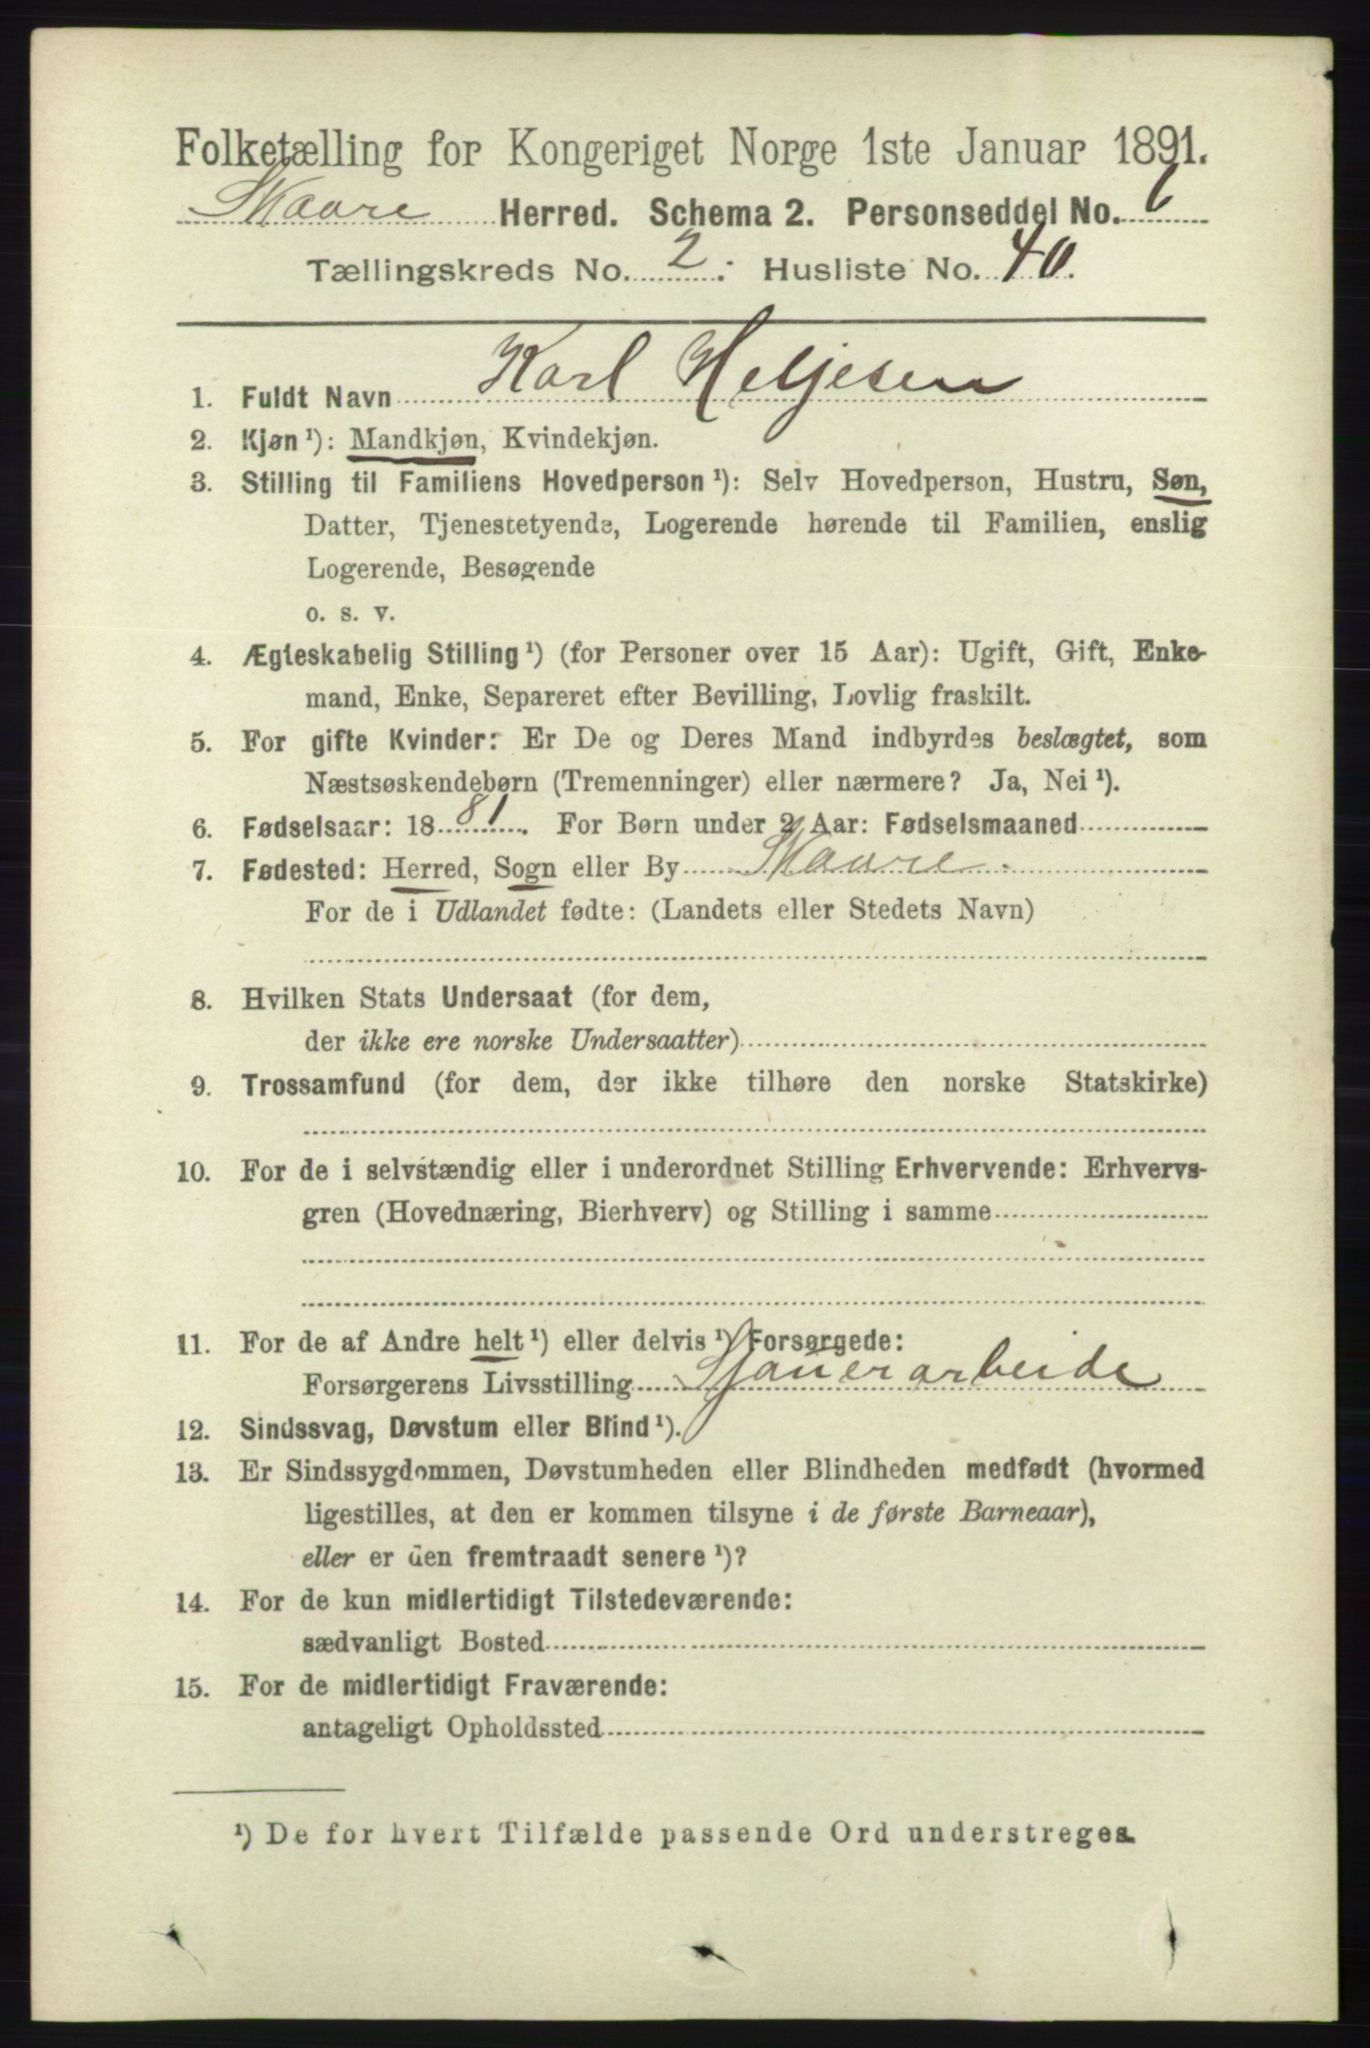 Folketælling for Kongeriget Norge 1ste Januar 1891.
Skaare Herred. Schema 2. Personseddel No. 6
Tællingskreds No. 2. Husliste No. 40.
Karl Heljesen
1. Fuldt Navn
2. Kjøn ¹): Mandkjøn, Kvindekjøn.
3. Stilling til Familiens Hovedperson ¹): Selv Hovedperson, Hustru, Søn,
Datter, Tjenestetyende, Logerende hørende til Familien, enslig
Logerende, Besøgende
o. s. v.
4. Ægteskabelig Stilling ¹) (for Personer over 15 Aar): Ugift, Gift, Enke-
mand, Enke, Separeret efter Bevilling, Lovlig fraskilt.
5. For gifte Kvinder: Er De og Deres Mand indbyrdes beslægtet, som
Næstsøskendebørn (Tremenninger) eller nærmere? Ja, Nei ¹).
6. Fødselsaar: 1881. For Børn under 2 Aar: Fødselsmaaned
7. Fødested: Herred, Sogn eller By Skaare.
For de i Udlandet fødte: (Landets eller Stedets Navn)
8. Hvilken Stats Undersaat (for dem,
der ikke ere norske Undersaatter)
9. Trossamfund (for dem, der ikke tilhøre den norske Statskirke)
10. For de i selvstændig eller i underordnet Stilling Erhvervende: Erhvervs-
gren (Hovednæring, Bierhverv) og Stilling i samme
11. For de af Andre helt ¹) eller delvis ¹) Forsørgede:
Forsørgerens Livsstilling Sjauerarbeide
12. Sindssvag, Døvstum eller Blind ¹).
13. Er Sindssygdommen, Døvstumheden eller Blindheden medfødt (hvormed
ligestilles, at den er kommen tilsyne i de første Barneaar),
eller er den fremtraadt senere ¹)?
14. For de kun midlertidigt Tilstedeværende:
sædvanligt Bosted
15. For de midlertidigt Fraværende:
antageligt Opholdssted
¹) De for hvert Tilfælde passende Ord understreges.